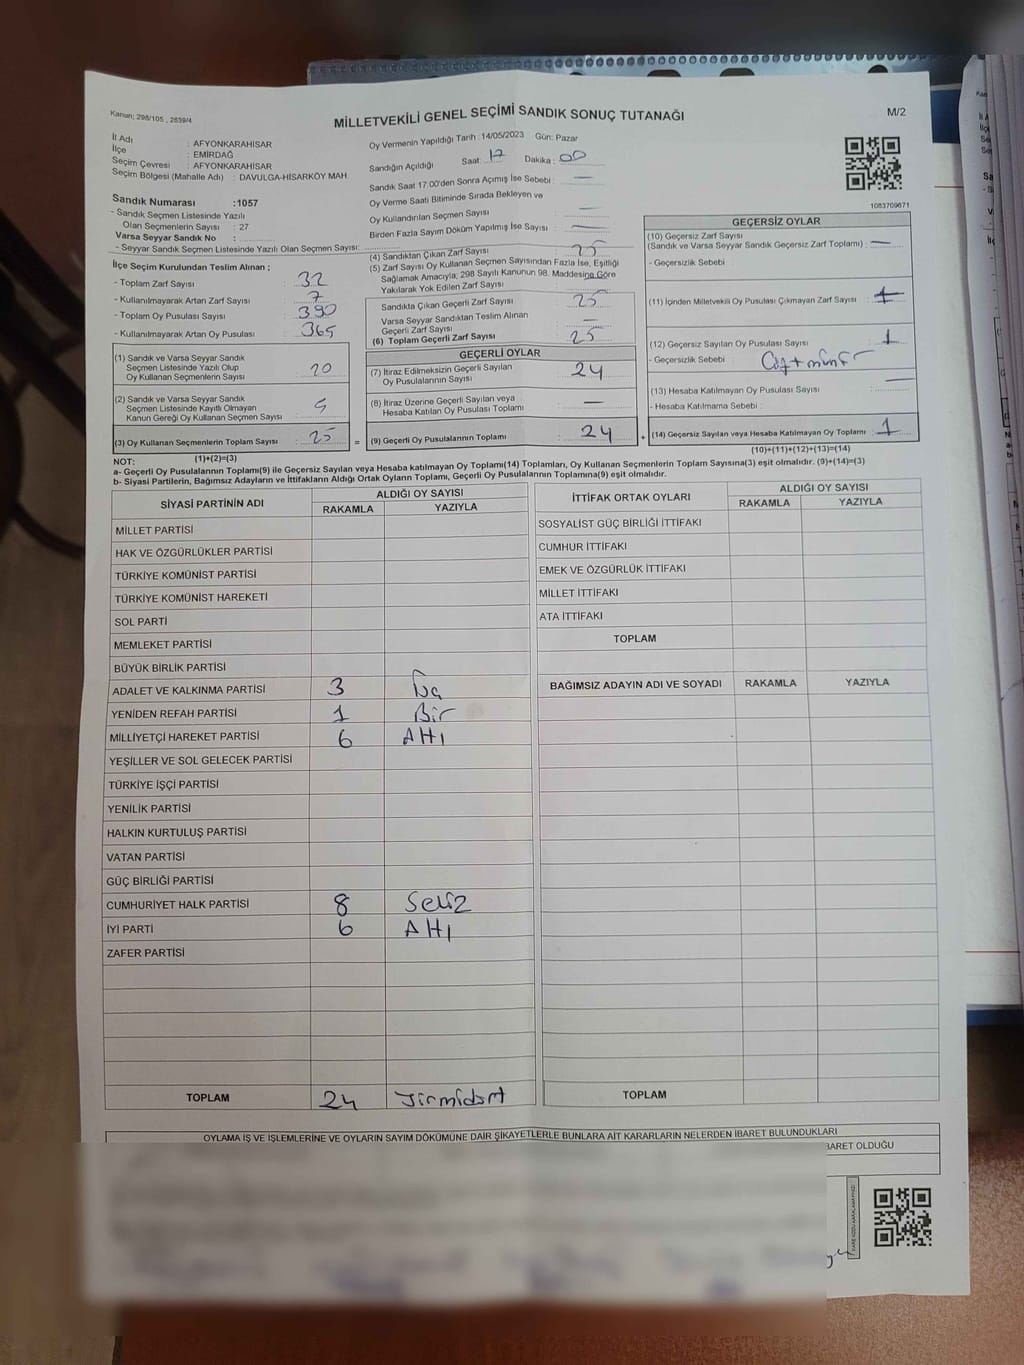 Kanun; 298/105 , 2839/4
MİLLETVEKİLİ GENEL SEÇİMİ SANDIK SONUÇ TUTANAĞI
M/2
İl Adı : AFYONKARAHİSAR
İlçe : EMİRDAĞ
Seçim Çevresi : AFYONKARAHİSAR
Seçim Bölgesi (Mahalle Adı) : DAVULGA-HİSARKÖY MAH.
Sandık Numarası :1057
- Sandık Seçmen Listesinde Yazılı
Olan Seçmenlerin Sayısı : 27
Varsa Seyyar Sandık No :
- Seyyar Sandık Seçmen Listesinde Yazılı Olan Seçmen Sayısı:
İlçe Seçim Kurulundan Teslim Alınan ;
- Toplam Zarf Sayısı : 32
- Kullanılmayarak Artan Zarf Sayısı : 7
- Toplam Oy Pusulası Sayısı : 390
- Kullanılmayarak Artan Oy Pusulası : 365
(1) Sandık ve Varsa Seyyar Sandık
Seçmen Listesinde Yazılı Olup
Oy Kullanan Seçmenlerin Sayısı : 20
(2) Sandık ve Varsa Seyyar Sandık
Seçmen Listesinde Kayıtlı Olmayan
Kanun Gereği Oy Kullanan Seçmen Sayısı : 5
(3) Oy Kullanan Seçmenlerin Toplam Sayısı : 25 =
(1)+(2)=(3)
Oy Vermenin Yapıldığı Tarih :14/05/2023 Gün: Pazar
Sandığın Açıldığı Saat: 17 Dakika : 00
Sandık Saat 17:00'den Sonra Açımış İse Sebebi : —
Oy Verme Saati Bitiminde Sırada Bekleyen ve
Oy Kullandırılan Seçmen Sayısı : —
Birden Fazla Sayım Döküm Yapılmış İse Sayısı : —
(4) Sandıktan Çıkan Zarf Sayısı : 25
(5) Zarf Sayısı Oy Kullanan Seçmen Sayısından Fazla İse, Eşitliği
Sağlamak Amacıyla; 298 Sayılı Kanunun 98. Maddesine Göre
Yakılarak Yok Edilen Zarf Sayısı :
Sandıkta Çıkan Geçerli Zarf Sayısı : 25
Varsa Seyyar Sandıktan Teslim Alınan
Geçerli Zarf Sayısı : —
(6) Toplam Geçerli Zarf Sayısı : 25
GEÇERLİ OYLAR
(7) İtiraz Edilmeksizin Geçerli Sayılan
Oy Pusulalarının Sayısı : 24
(8) İtiraz Üzerine Geçerli Sayılan veya
Hesaba Katılan Oy Pusulası Toplamı : —
(9) Geçerli Oy Pusulalarının Toplamı : 24 +
1083709671
GEÇERSİZ OYLAR
(10) Geçersiz Zarf Sayısı
(Sandık ve Varsa Seyyar Sandık Geçersiz Zarf Toplamı) : —
- Geçersizlik Sebebi :
(11) İçinden Milletvekili Oy Pusulası Çıkmayan Zarf Sayısı :
(12) Geçersiz Sayılan Oy Pusulası Sayısı : 1
- Geçersizlik Sebebi :
(13) Hesaba Katılmayan Oy Pusulası Sayısı : —
- Hesaba Katılmama Sebebi :
(14) Geçersiz Sayılan veya Hesaba Katılmayan Oy Toplamı : 1
(10)+(11)+(12)+(13)=(14)
NOT:
a- Geçerli Oy Pusulalarının Toplamı(9) ile Geçersiz Sayılan veya Hesaba katılmayan Oy Toplamı(14) Toplamları, Oy Kullanan Seçmenlerin Toplam Sayısına(3) eşit olmalıdır. (9)+(14)=(3)
b- Siyasi Partilerin, Bağımsız Adayların ve İttifakların Aldığı Ortak Oyların Toplamı, Geçerli Oy Pusulalarının Toplamına(9) eşit olmalıdır.
SİYASİ PARTİNİN ADI ALDIĞI OY SAYISI
RAKAMLA YAZIYLA
MİLLET PARTİSİ
HAK VE ÖZGÜRLÜKLER PARTİSİ
TÜRKİYE KOMÜNİST PARTİSİ
TÜRKİYE KOMÜNİST HAREKETİ
SOL PARTİ
MEMLEKET PARTİSİ
BÜYÜK BİRLİK PARTİSİ
ADALET VE KALKINMA PARTİSİ 3 Üç
YENİDEN REFAH PARTİSİ 1 Bir
MİLLİYETÇİ HAREKET PARTİSİ 6 AHı
YEŞİLLER VE SOL GELECEK PARTİSİ
TÜRKİYE İŞÇİ PARTİSİ
YENİLİK PARTİSİ
HALKIN KURTULUŞ PARTİSİ
VATAN PARTİSİ
GÜÇ BİRLİĞİ PARTİSİ
CUMHURİYET HALK PARTİSİ 8 Sekiz
İYİ PARTİ 6 AHı
ZAFER PARTİSİ
TOPLAM 24 Yirmidört
İTTİFAK ORTAK OYLARI ALDIĞI OY SAYISI
RAKAMLA YAZIYLA
SOSYALİST GÜÇ BİRLİĞİ İTTİFAKI
CUMHUR İTTİFAKI
EMEK VE ÖZGÜRLÜK İTTİFAKI
MİLLET İTTİFAKI
ATA İTTİFAKI
TOPLAM
BAĞIMSIZ ADAYIN ADI VE SOYADI RAKAMLA YAZIYLA
TOPLAM
OYLAMA İŞ VE İŞLEMLERİNE VE OYLARIN SAYIM DÖKÜMÜNE DAİR ŞİKAYETLERLE BUNLARA AİT KARARLARIN NELERDEN İBARET BULUNDUKLARI
BARET OLDUĞU